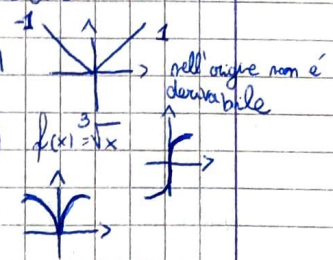 -1 1
nell'origine non é
derivabile
f(x)=∛x